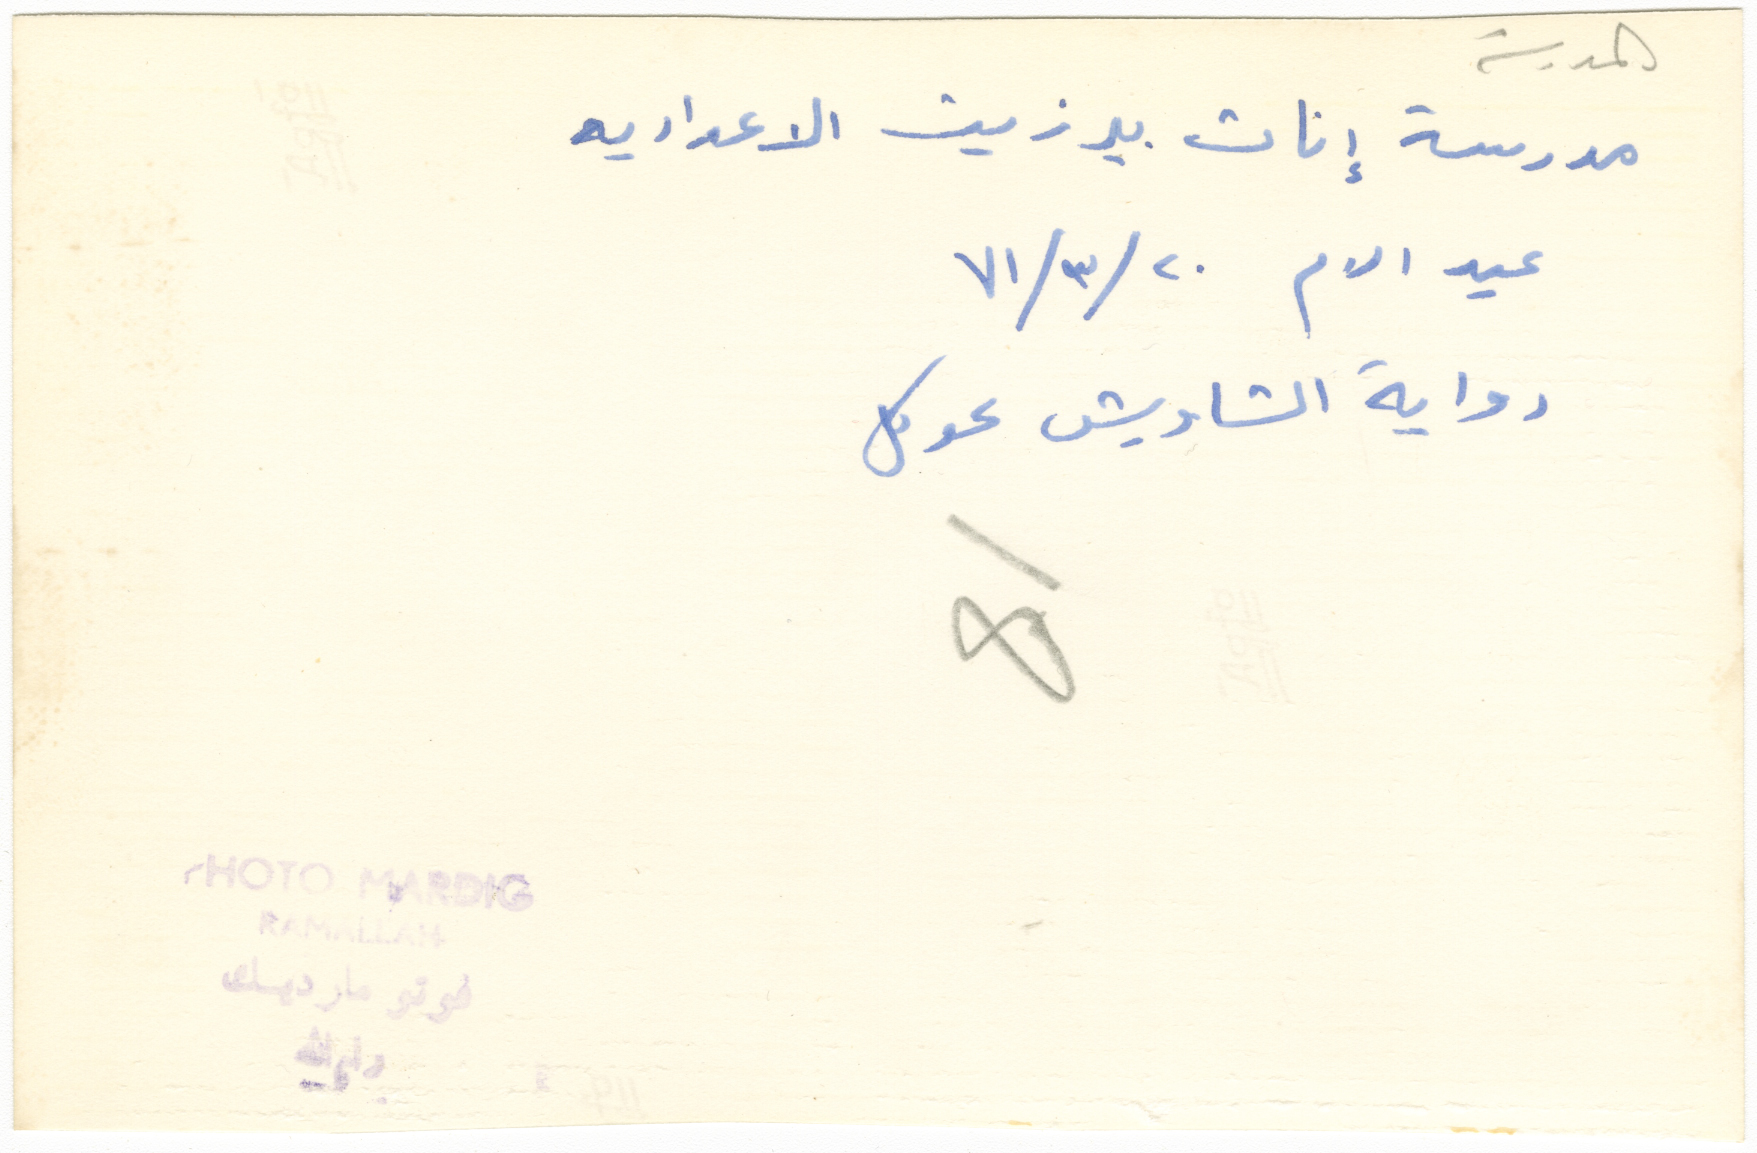 المدرسة
مدرسة إناث بيرزيت الاعداديه
عيد الام ٢٠/٣/٧١
رواية الشاويش عوكل
8
PHOTO MARDIG
RAMALLAH
فوتو مارديك
رام الله